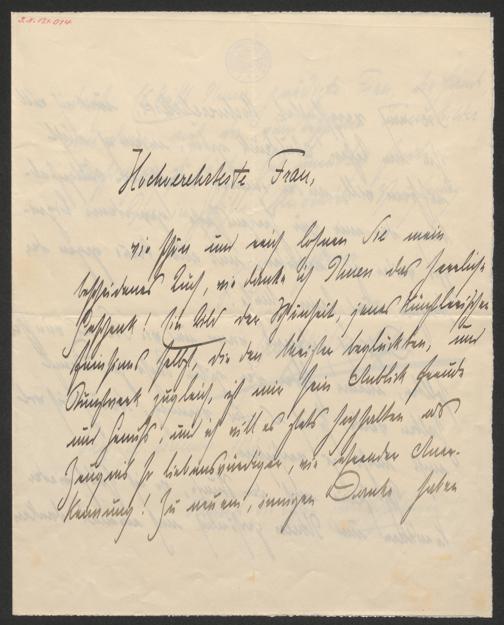 I.N. 121.014
Hochverehrteste Frau,
wie schön und reich lohnen Sie mein
bescheidenes Buch, wie danke ich Ihnen das herrliche
Geschenk! Ein Bild der Schönheit, jenes künstlerischen
selbst, die den Meister beglückten, und
Kunstwerk zugleich, ist mir sein Anblick Freude
und Genuß, und ich will es stets hochhalten als
Zeugnis so liebenswürdiger, wie ehrender Aner-
kennung! Zu neuem, innigen Danke haben